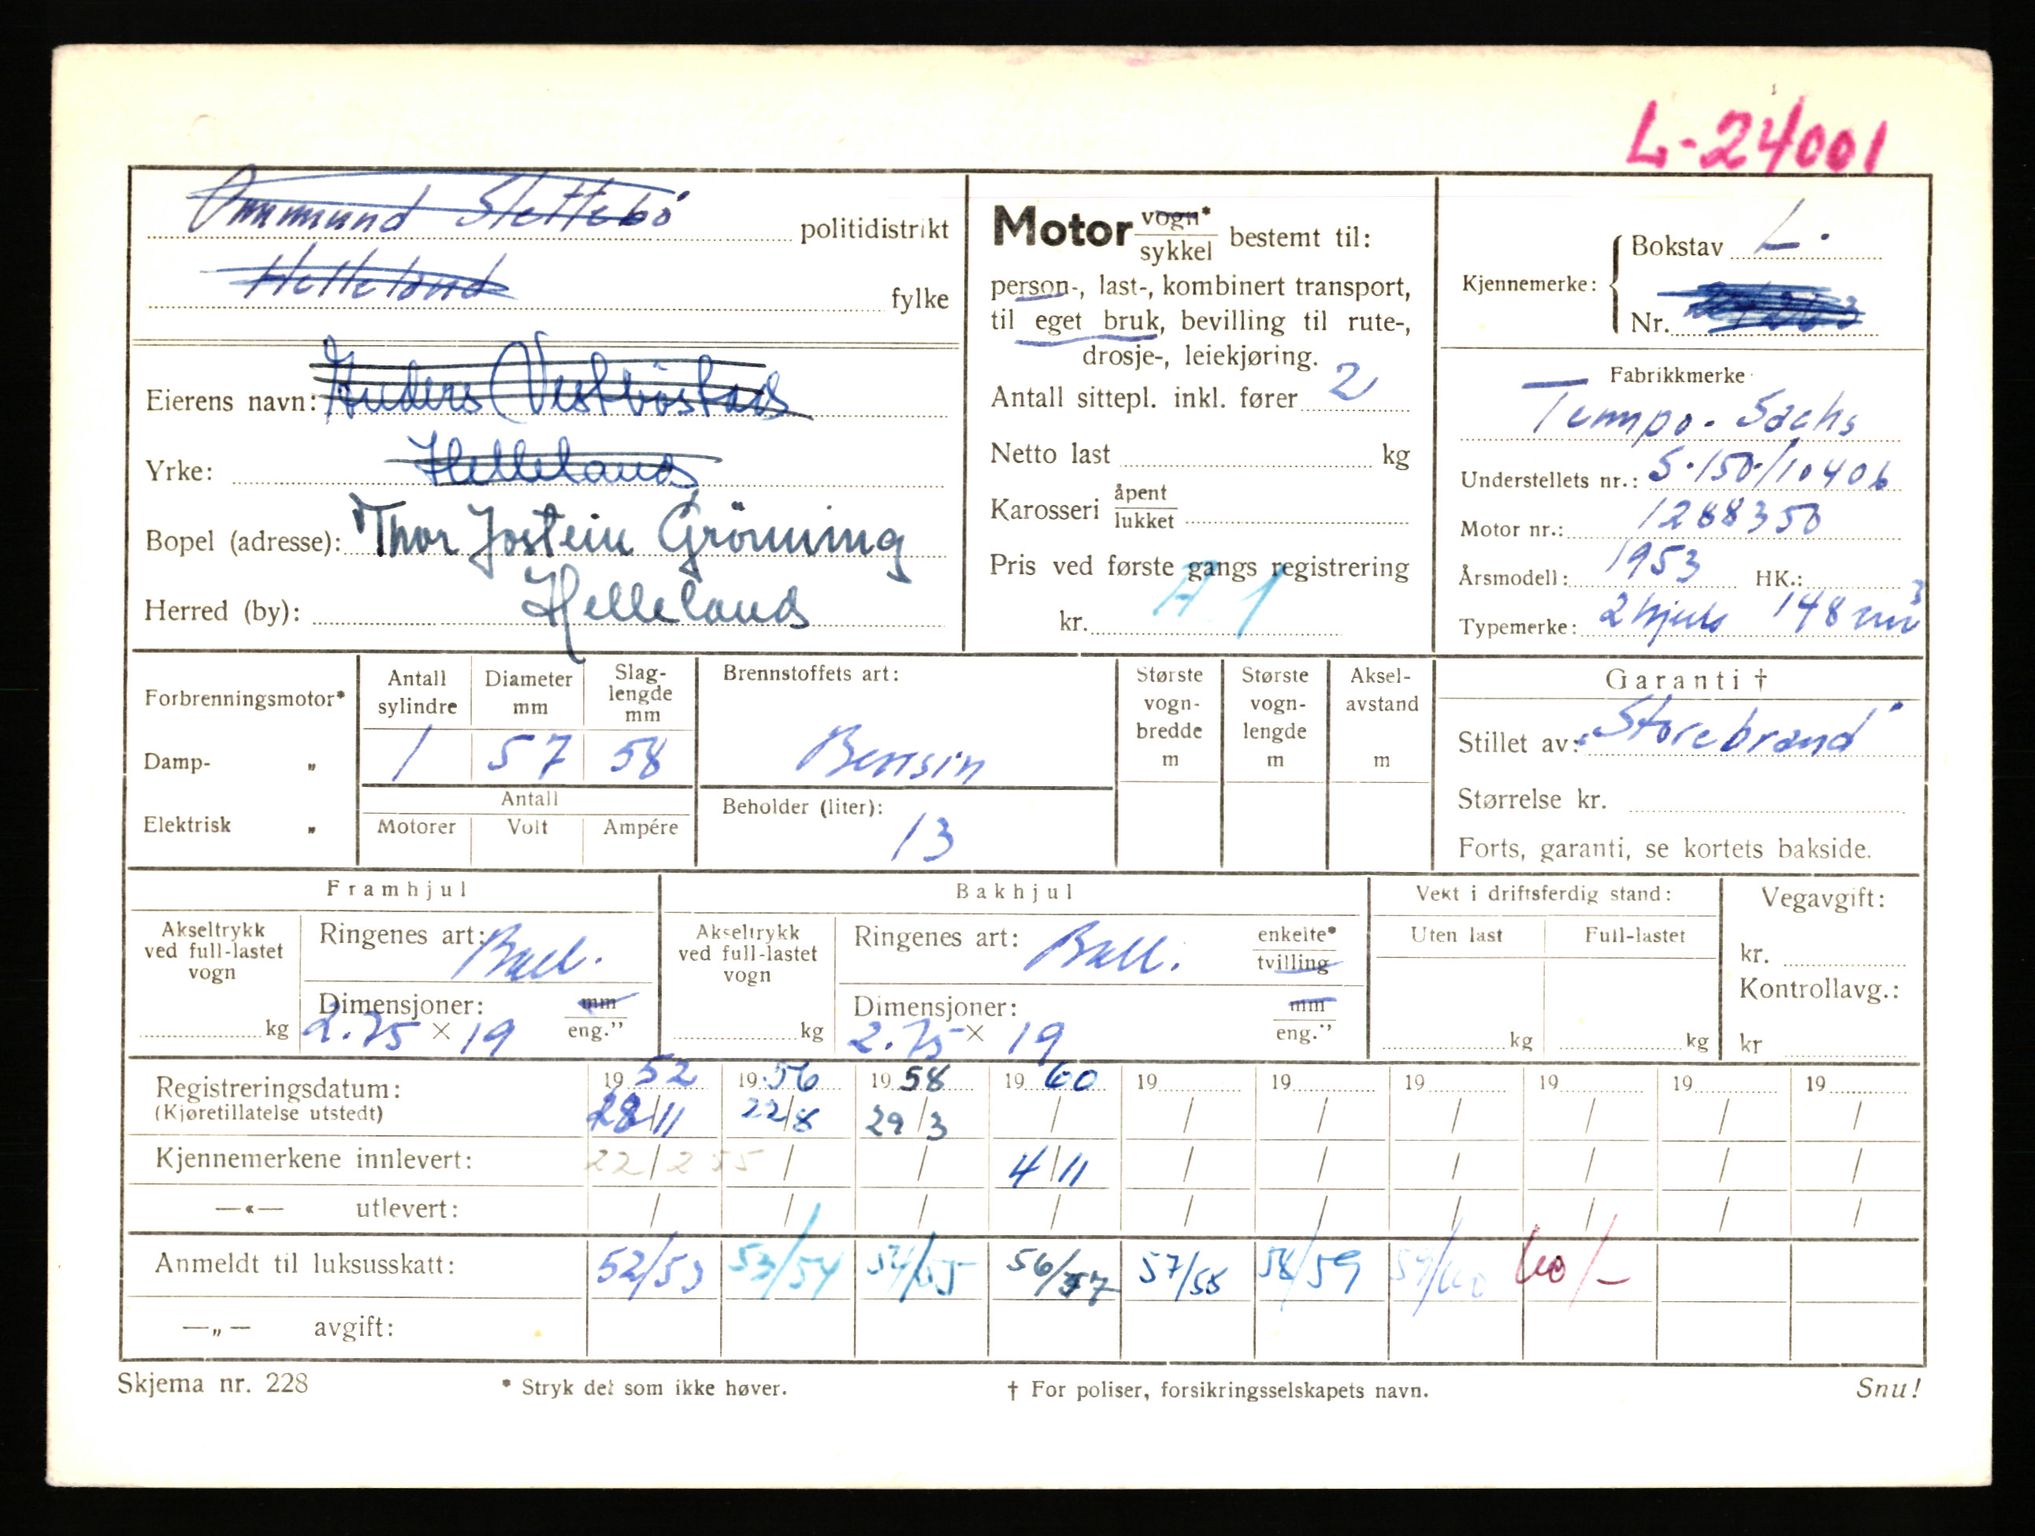 L-24001
Ommund Slettebö politidistrikt
Helleland fylke
Eierens navn: Anders Vestböstad
Yrke: Helleland
Bopel (adresse): Thor Jostein Grönning
Herred (by): Helleland
Motor vogn* / sykkel bestemt til:
person-, last-, kombinert transport,
til eget bruk, bevilling til rute-,
drosje-, leiekjøring.
Antall sittepl. inkl. fører 2
Netto last kg
Karosseri åpent / lukket
Pris ved første gangs registrering
kr. A 1
Kjennemerke: Bokstav L.
Nr.
Fabrikkmerke
Tempo - Sachs
Understellets nr.: S.150/10406
Motor nr.: 1288350
Årsmodell: 1953 HK.:
Typemerke: 2 hjuls 148 mm³
Forbrenningsmotor*
Damp- „
Elektrisk „
Antall sylindre Diameter mm Slag-lengde mm
1 57 58
Antall
Motorer Volt Ampére
Brennstoffets art:
Bensin
Beholder (liter):
13
Største vogn-bredde m
Største vogn-lengde m
Aksel-avstand m
Garanti †
Stillet av: Storebrand
Størrelse kr.
Forts, garanti, se kortets bakside.
Framhjul
Akseltrykk ved full-lastet vogn
kg
Ringenes art: Ball.
Dimensjoner: mm / eng.”
2.75 × 19
Bakhjul
Akseltrykk ved full-lastet vogn
kg
Ringenes art: Ball. enkelte* / tvilling
Dimensjoner: mm / eng.”
2.75 × 19
Vekt i driftsferdig stand:
Uten last Full-lastet
kg kg
Vegavgift:
kr.
Kontrollavg.:
kr
Registreringsdatum: 19 52 19 56 19 58 19 60 19 19 19 19 19 19
(Kjøretillatelse utstedt) 28/11 22/8 29/3 / / / / / / /
Kjennemerkene innlevert: 22/2 55 / / 4/11 / / / / / /
—«— utlevert: / / / / / / / / / /
Anmeldt til luksusskatt: 52/53 53/54 54/55 56/57 57/58 58/59 59/60 60/-
—„— avgift:
Skjema nr. 228 * Stryk det som ikke høver. † For poliser, forsikringsselskapets navn. Snu!